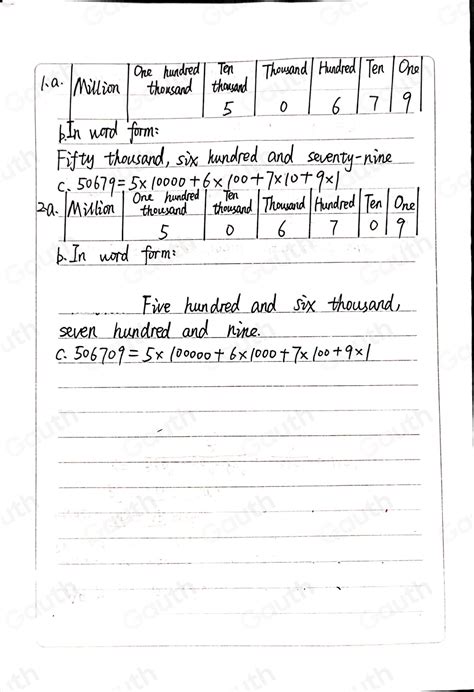 1.a. Million One hundred thousand Ten thousand Thousand Hundred Ten One
5 0 6 7 9
b. In word form:
Fifty thousand, six hundred and seventy-nine
c. 50679=5×10000+6×100+7×10+9×1
2a. Million One hundred thousand Ten thousand Thousand Hundred Ten One
5 0 6 7 0 9
b. In word form:
Five hundred and six thousand,
seven hundred and nine.
c. 506709=5×100000+6×1000+7×100+9×1